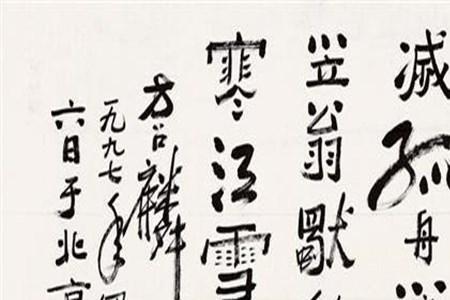 滅孤舟
笠翁獨
寒江雪
方召麐
一九九七年
六日于北京